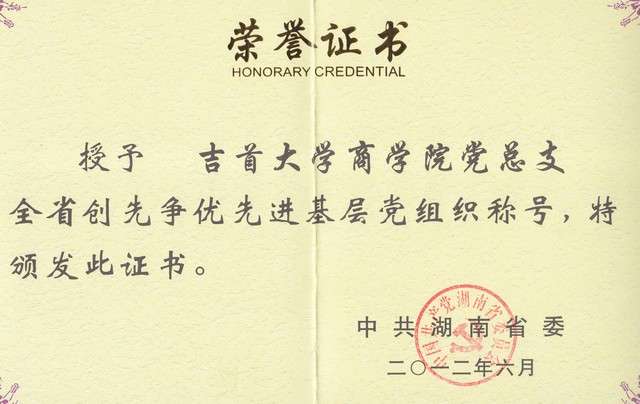 荣誉证书
HONORARY CREDENTIAL
授予 吉首大学商学院党总支
全省创先争优先进基层党组织称号，特
颁发此证书。
中共湖南省委
二〇一二年六月
中国共产党湖南省委员会